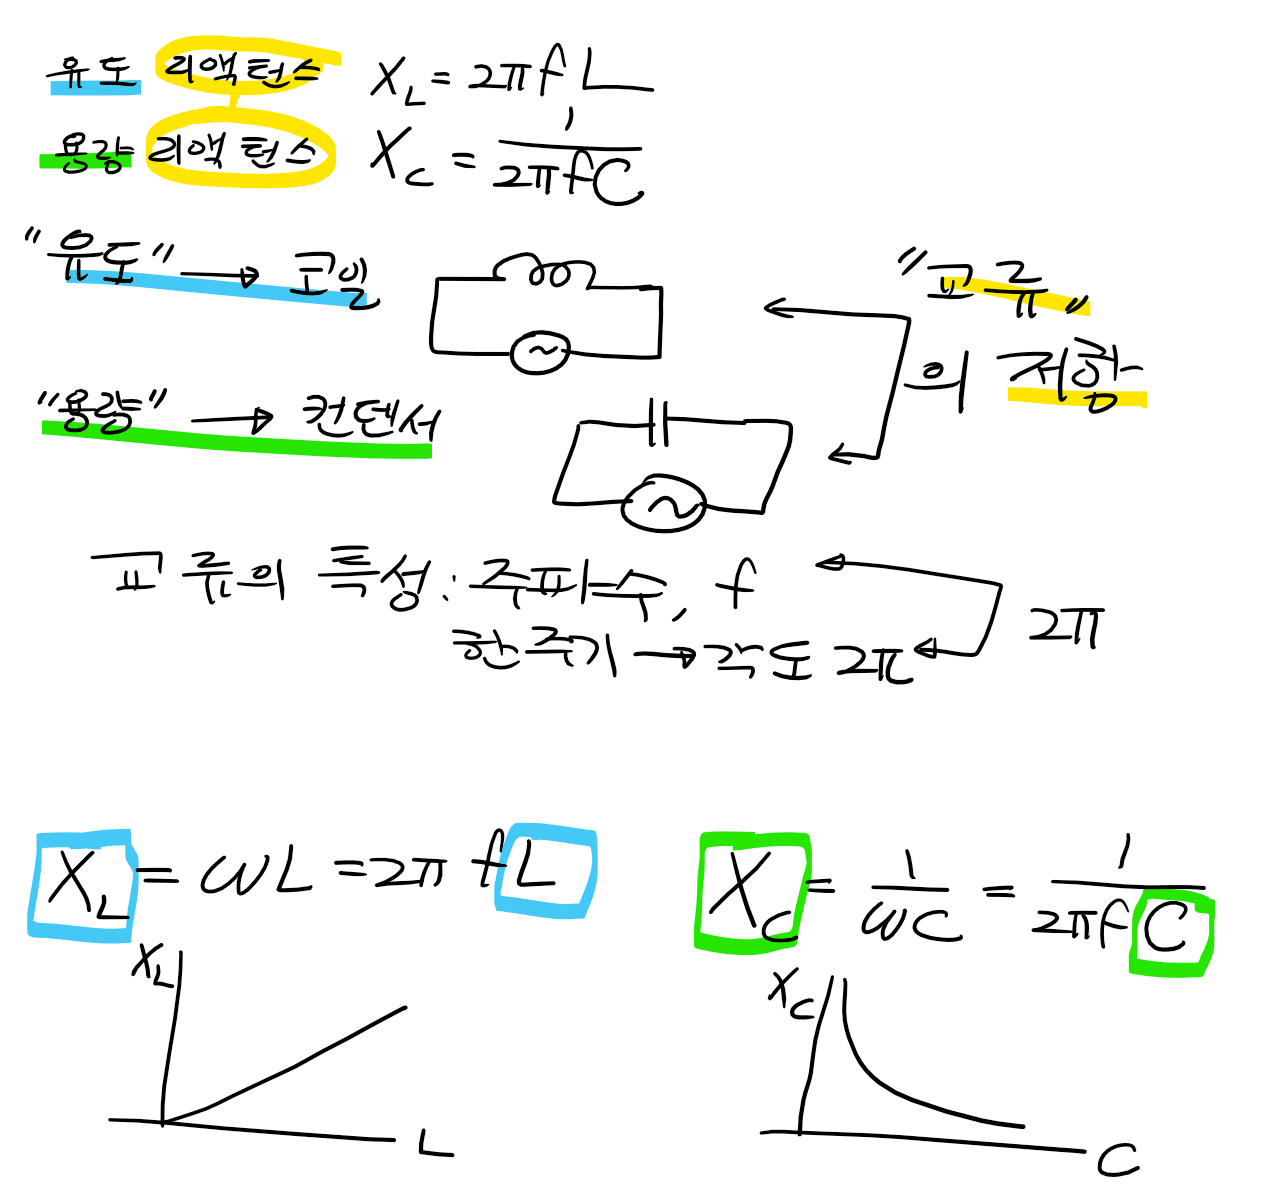 유도 리액턴스 X_L = 2πfL
용량 리액턴스 X_C = 1/2πfC
"유도" → 코일
"교류"
의 저항
"용량" → 컨덴서
교류의 특성 : 주파수, f
한주기 → 각도 2π
2π
X_L = ωL = 2πfL
X_C = 1/ωC = 1/2πfC
X_L
L
X_C
C